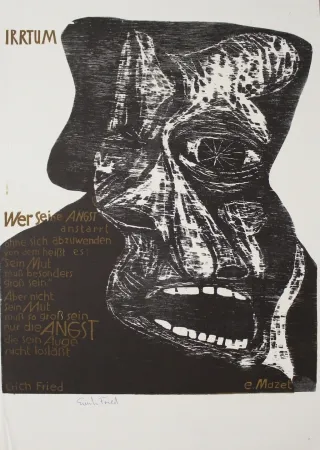 IRRTUM
Wer seine ANGST
anstarrt
ohne sich abzuwenden
von dem heißt es:
"Sein Mut
muß besonders
groß sein."
Aber nicht
sein Mut
muß so groß sein
nur die ANGST
die sein Auge
nicht losläßt
Erich Fried
e. Mazet